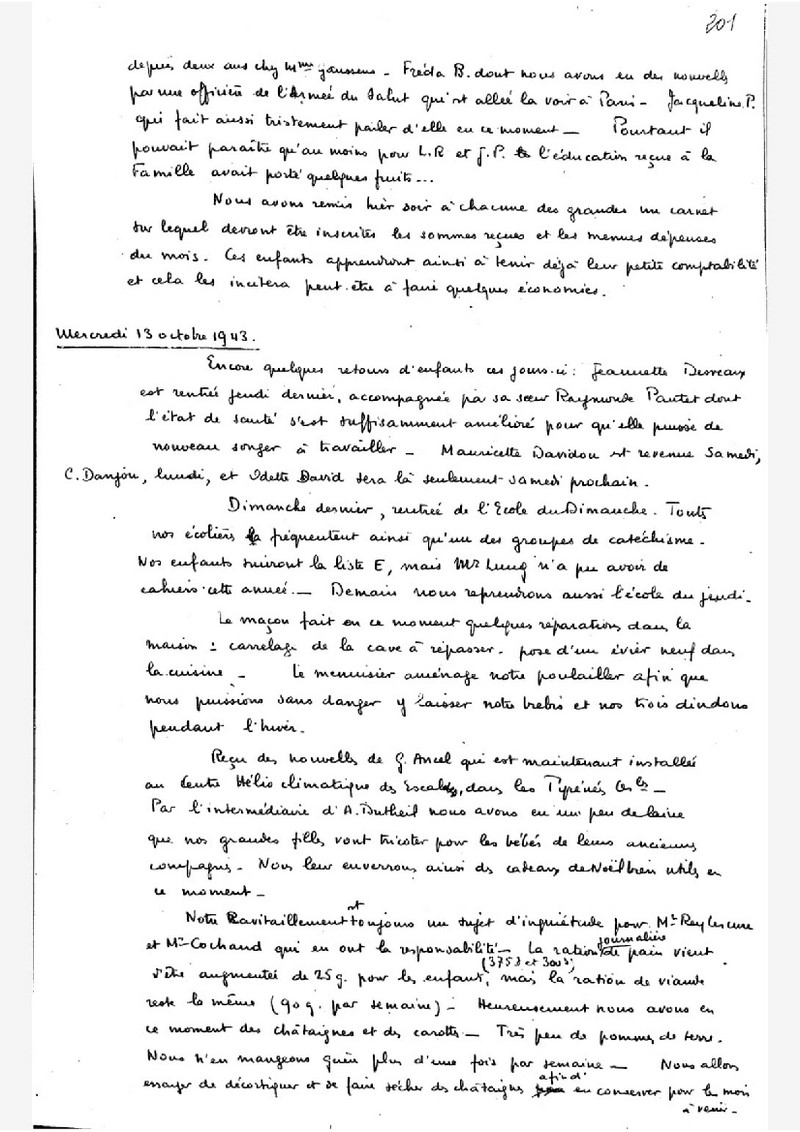 201
depuis deux ans chez Mme Janssens - Fréda B. dont nous avons eu des nouvelles
par une officière de l'Armée du Salut qui est allée la voir à Paris - Jacqueline P.
qui fait aussi tristement parler d'elle en ce moment - Pourtant il
pouvait paraître qu'au moins pour L.R et J.P. l'éducation reçue à la
Famille avait porté quelques fruits...
Nous avons remis hier soir à chacune des grandes un carnet
sur lequel devront être inscrites les sommes reçues et les menues dépenses
du mois. Ces enfants apprendront ainsi à tenir déjà leur petite comptabilité
et cela les incitera peut-être à faire quelques économies.
Mercredi 13 octobre 1943.
Encore quelques retours d'enfants ces jours-ci : Jeannette
est rentrée jeudi dernier, accompagnée par sa sœur Raymonde Pautet dont
l'état de santé s'est suffisamment amélioré pour qu'elle puisse de
nouveau songer à travailler - Mauricette Davidou est revenue Samedi,
C. Danjou, lundi, et Odette David sera là seulement samedi prochain.
Dimanche dernier, rentrée de l'Ecole du Dimanche. Touts
nos écoliers fréquentent ainsi qu'un des groupes de catéchisme.
Nos enfants suivront la liste E, mais Mr Lung n'a pu avoir de
cahiers cette année. - Demain nous reprendrons aussi l'école du jeudi.
Le maçon fait en ce moment quelques réparations dans la
maison : carrelage de la cave à repasser - pose d'un évier neuf dans
la cuisine - Le menuisier aménage notre poulailler afin que
nous puissions sans danger y laisser notre brebis et nos trois dindons
pendant l'hiver.
Reçu des nouvelles de G. Ancel qui est maintenant installée
au Centre Hélio climatique des Escaldes, dans les Pyrénées Ores -
Par l'intermédiaire d'A. Dutheil nous avons eu un peu de laine
que nos grandes filles vont tricoter pour les bébés de leurs anciennes
compagnes - Nous leur enverrons ainsi des cadeaux de Noël bien utiles en
ce moment -
Notre Ravitaillement est toujours un sujet d'inquiétude pour Mr Rey Lescure
et Mr Cochand qui en ont la responsabilité - La ration journalière de pain vient
d'être augmentée de 25 g. pour les enfants, (375g et 300g) mais la ration de viande
reste la même (90 g. par semaine) - Heureusement nous avons en
ce moment des châtaignes et des carottes - Très peu de pommes de terre.
Nous n'en mangeons guère plus d'une fois par semaine - Nous allons
essayer de décortiquer et de faire sécher des châtaignes afin d' en conserver pour les mois
à venir -